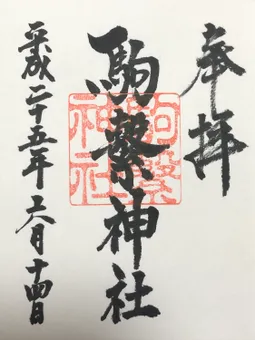 奉拝
駒繋神社
平成二十五年六月十四日
駒繋
神社